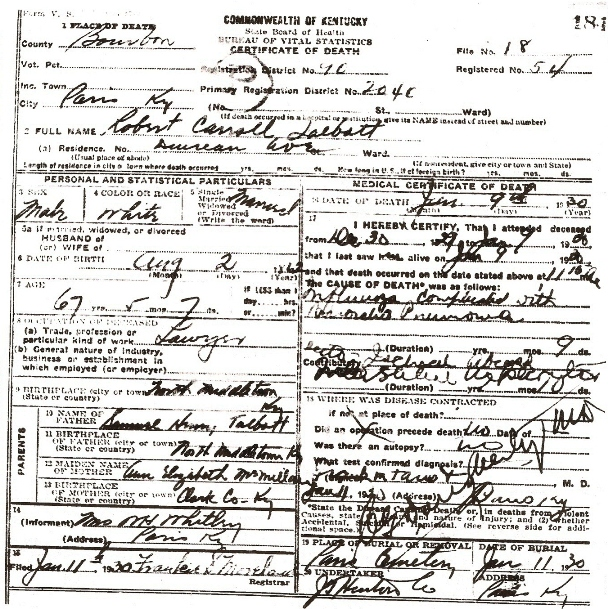 Form V. S.
COMMONWEALTH OF KENTUCKY
State Board of Health
BUREAU OF VITAL STATISTICS
CERTIFICATE OF DEATH
1 PLACE OF DEATH
County Bourbon
File No. 18
Vot. Pct.
Registration District No. 90
Registered No. 54
Inc. Town
Primary Registration District No. 2040
City Paris Ky
(No. St., Ward)
(If death occurred in a hospital or institution, give its NAME instead of street and number)
2 FULL NAME Robert Carroll Talbott
(a) Residence. No. Duncan Ave Ward.
(Usual place of abode) (If nonresident, give city or town and State)
Length of residence in city or town where death occurred yrs. mos. ds. How long in U.S., if of foreign birth? yrs. mos. ds.
PERSONAL AND STATISTICAL PARTICULARS
3 SEX
Male
4 COLOR OR RACE
White
5 Single
Married
Widowed
or Divorced
(Write the word)
Married
5a If married, widowed, or divorced
HUSBAND of
(or) WIFE of
6 DATE OF BIRTH Aug 2 1862
(Month) (Day) (Year)
7 AGE
67 yrs. 5 mos. 7 ds.
If LESS than
day, hrs.
or min.?
8 OCCUPATION OF DECEASED
(a) Trade, profession or
particular kind of work Lawyer
(b) General nature of industry,
business or establishment in
which employed (or employer)
9 BIRTHPLACE (city or town) North Middletown
(State or country) Ky
PARENTS
10 NAME OF
FATHER Samuel Henry Talbott
11 BIRTHPLACE
OF FATHER (city or town) North Middletown Ky
(State or country)
12 MAIDEN NAME
OF MOTHER Ann Elizabeth McMillan
13 BIRTHPLACE
OF MOTHER (city or town) Clark Co - Ky
(State or country)
14
(Informant) Mrs W H Whitley
(Address) Paris Ky
15
Filed Jan. 11 1930
Registrar
MEDICAL CERTIFICATE OF DEATH
16 DATE OF DEATH Jan. 9th 1930
(Month) (Day) (Year)
17
I HEREBY CERTIFY, That I attended deceased
from Dec 30 1929, to Jan 9 1930
that I last saw him alive on Jan 9 1930
and that death occurred on the date stated above at 11
The CAUSE OF DEATH* was as follows:
Influenza complicated with
Pneumonia
(Duration) yrs. mos. 9 ds.
Contributory
(Duration) yrs. mos. ds.
18 WHERE WAS DISEASE CONTRACTED
if not at place of death?
Did an operation precede death? No Date of
Was there an autopsy? no
What test confirmed diagnosis?
M. D.
Jan 11 (Address) Paris Ky
*State the Disease Causing Death, or, in deaths from violent
Causes, state (1) Means and nature of Injury; and (2) whether
Accidental, Suicidal or Homicidal. (See reverse side for addi-
tional space.)
19 PLACE OF BURIAL OR REMOVAL
Paris Cemetery
DATE OF BURIAL
Jan 11 1930
20 UNDERTAKER
ADDRESS
Paris Ky